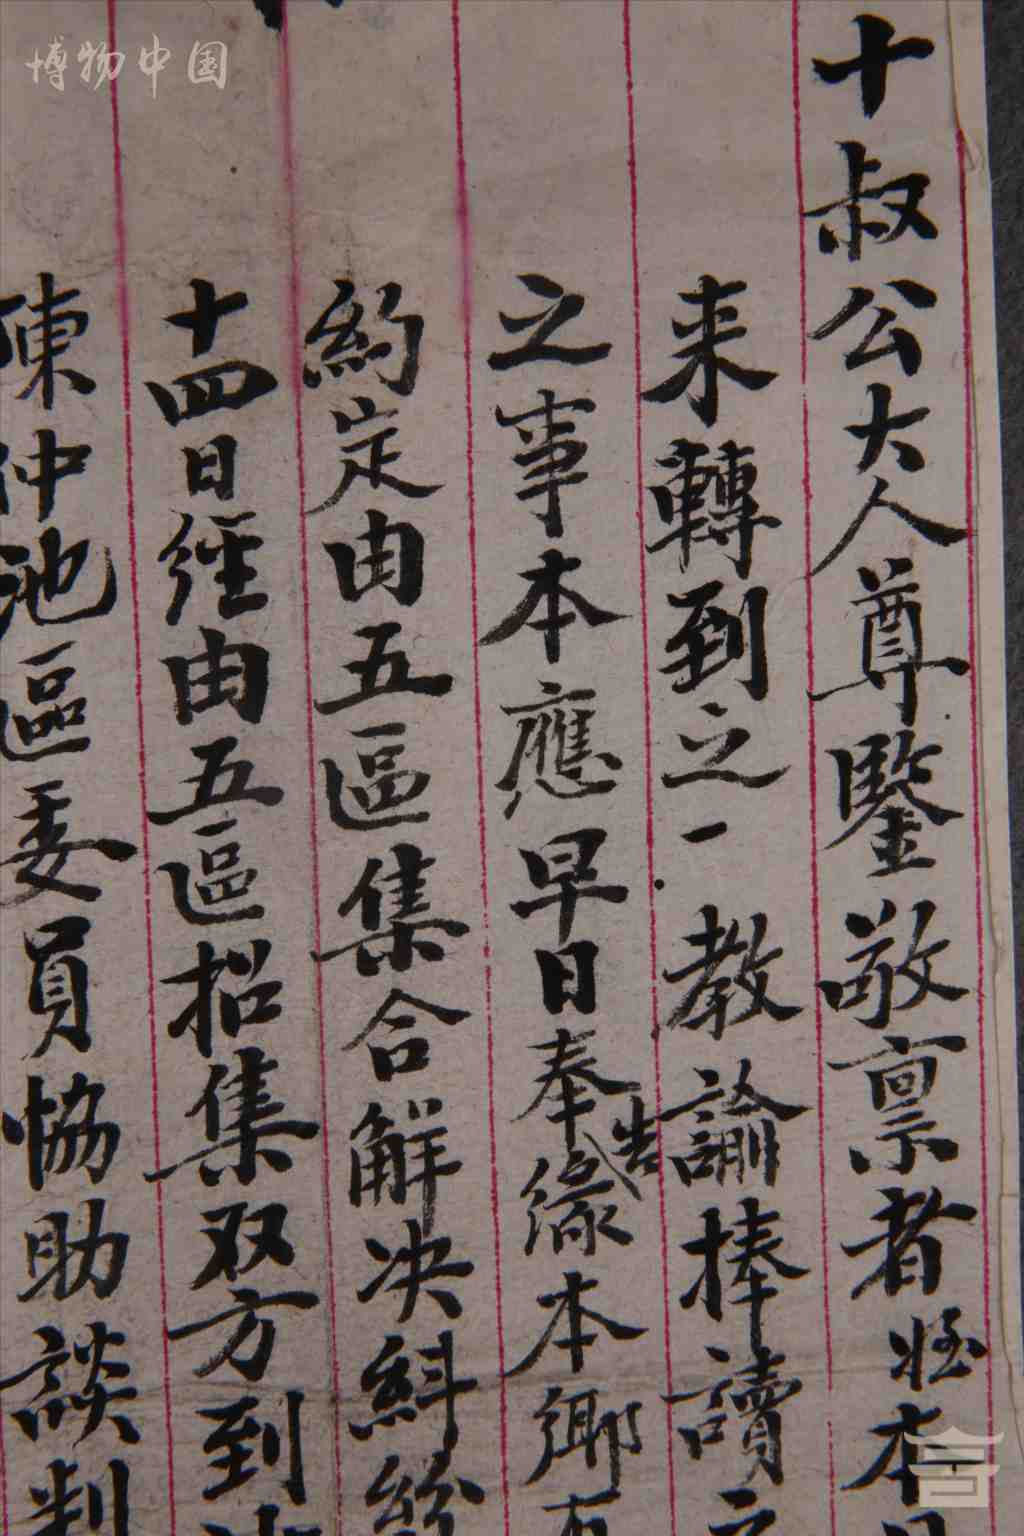 博物中国
十叔公大人尊鑒敬禀者姪本日
来轉到之一教諭捧讀之
之事本應早日奉告緣本鄉
約定由五區集合解决糾紛
十四日經由五區招集双方到
陳仲池區委員恊助談判